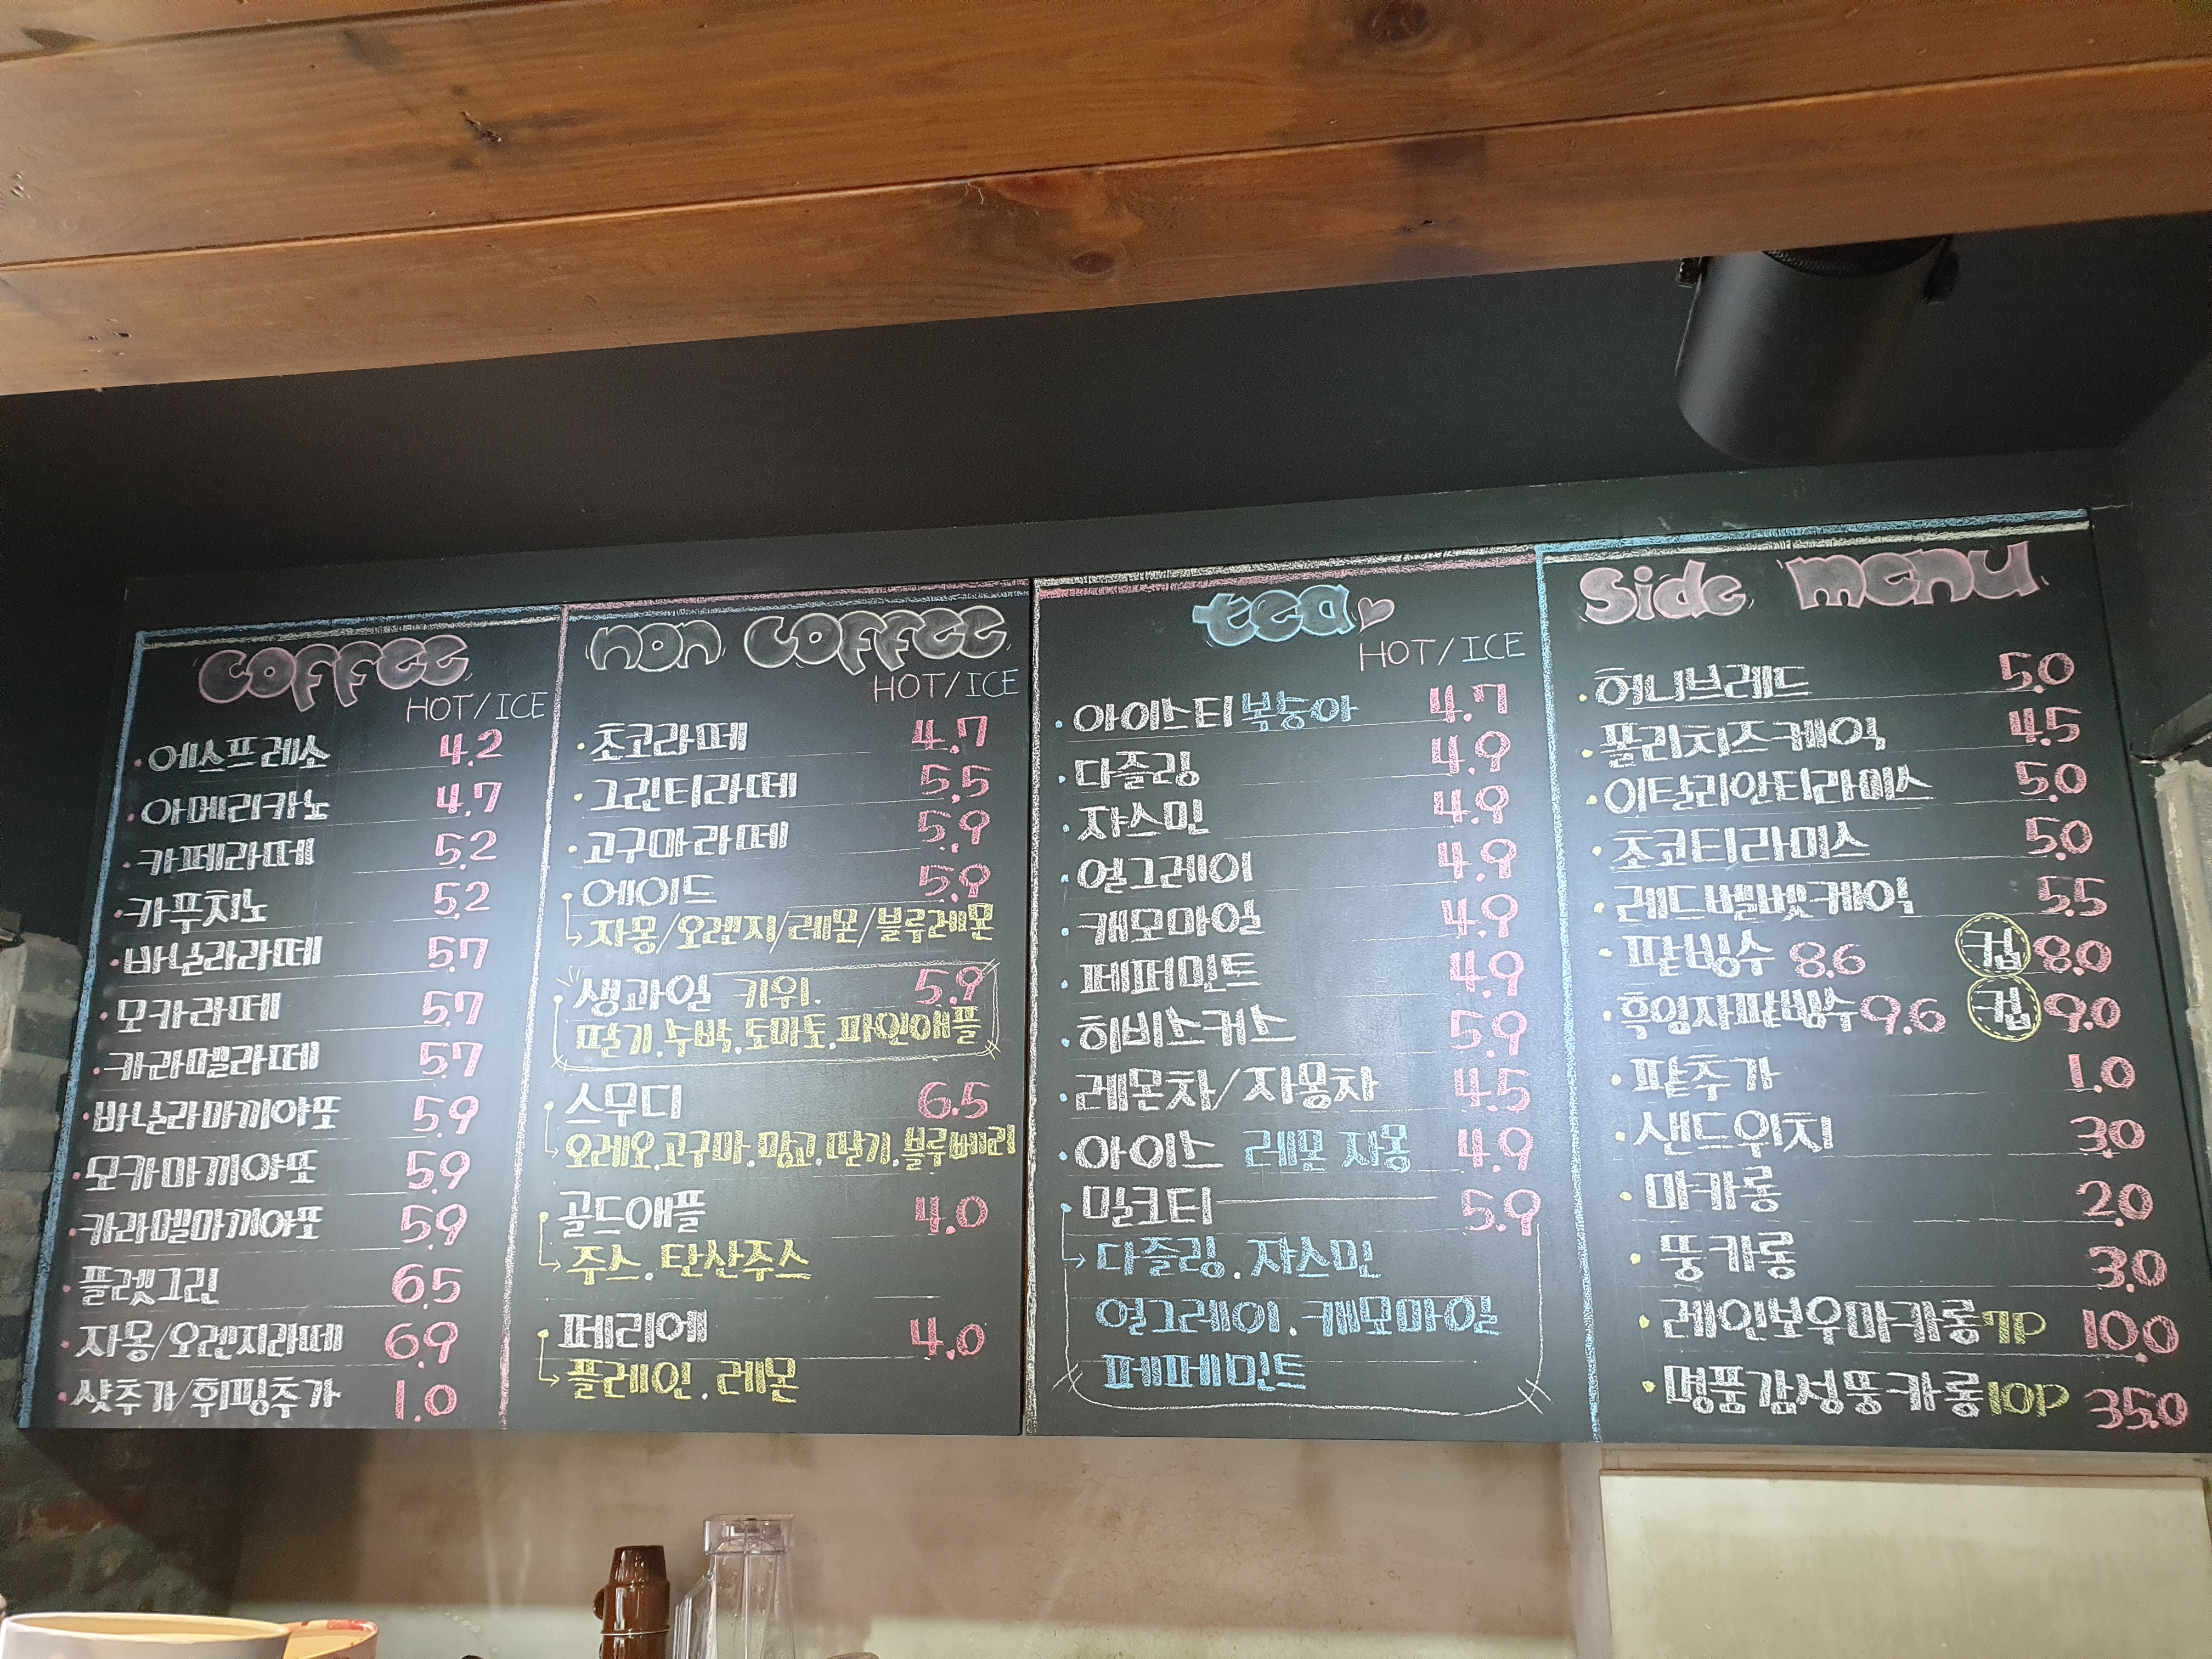 coffee
HOT/ICE
에스프레소 4.2
아메리카노 4.7
카페라떼 5.2
카푸치노 5.2
바닐라라떼 5.7
모카라떼 5.7
카라멜라떼 5.7
바닐라마끼아또 5.9
모카마끼아또 5.9
카라멜마끼아또 5.9
플렛그린 6.5
자몽/오렌지라떼 6.9
샷추가/휘핑추가 1.0
non coffee
HOT/ICE
초코라떼 4.7
그린티라떼 5.5
고구마라떼 5.9
에이드 5.9
자몽/오렌지/레몬/블루레몬
생과일 키위. 5.9
딸기.수박.토마토.파인애플
스무디 6.5
오레오.고구마.망고.딸기.블루베리
골드애플 4.0
주스.탄산주스
페리에 4.0
플레인.레몬
tea
HOT/ICE
아이스티 복숭아 4.7
다즐링 4.9
쟈스민 4.9
얼그레이 4.9
캐모마일 4.9
페퍼민트 4.9
히비스커스 5.9
레몬차/자몽차 4.5
아이스 레몬 자몽 4.9
밀크티 5.9
다즐링.쟈스민
얼그레이.캐모마일
페페민트
Side menu
허니브레드 5.0
몰리치즈케익 4.5
이탈리안티라미스 5.0
초코티라미스 5.0
레드벨벳케익 5.5
팥빙수 8.6 컵 8.0
흑임자팥빙수 9.6 컵 9.0
팥추가 1.0
샌드위치 3.0
마카롱 2.0
뚱카롱 3.0
레인보우마카롱 7P 10.0
명품감성뚱카롱 10P 35.0